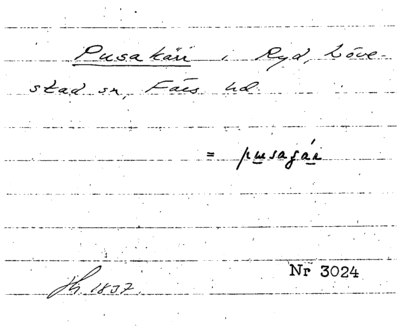 Pusakärr i Ryd, Löve-
stad sn, Färs hd.
= pusagär
Nr 3024
1837.